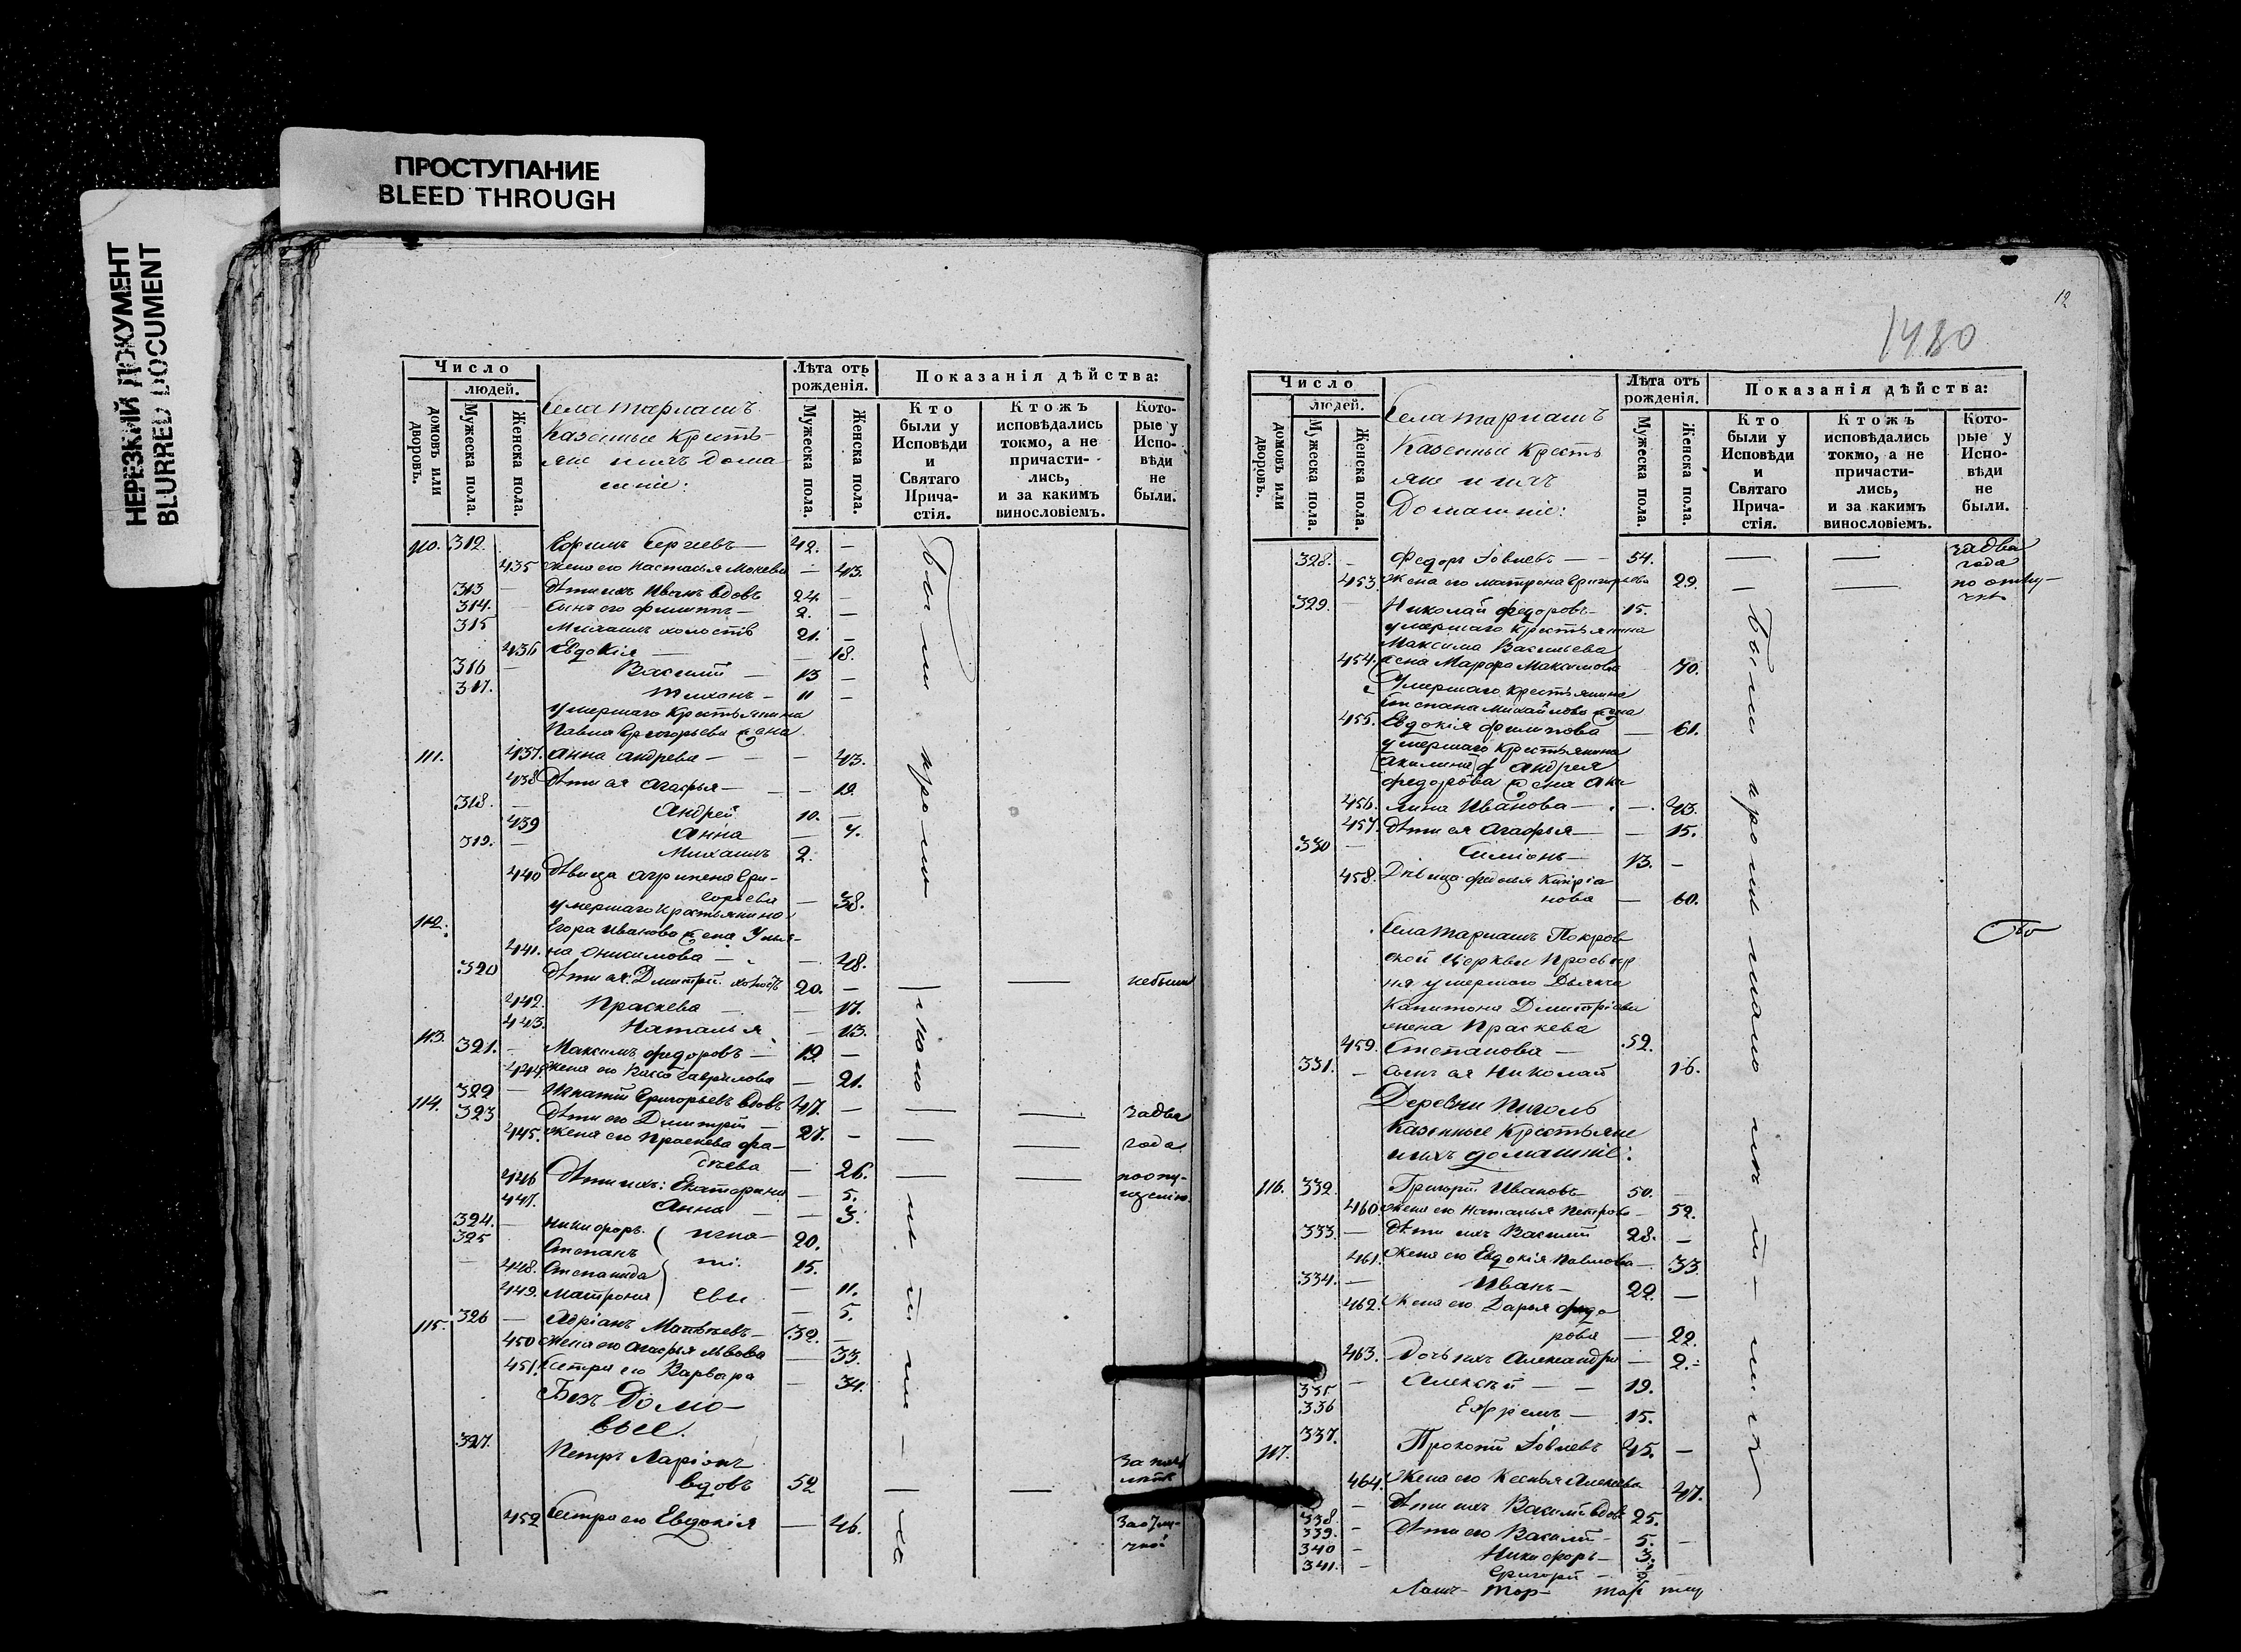 ПРОСТУПАНИЕ
BLEED THROUGH
НЕРЕЗКИЙ ДОКУМЕНТ
BLURRED DOCUMENT
Число
людей.
домовъ или дворовъ.
Мужеска пола.
Женска пола.
Лѣта отъ рожденія.
Мужеска пола.
Женска пола.
Показанія дѣйства:
Кто были у Исповѣди и Святаго Прича-стія.
Ктожъ исповѣдались токмо, а не причасти-лись, и за какимъ винословіемъ.
Кото-рые у Испо-вѣди не были.
Села
Казенные Кресть-
яне и ихъ Дома
шніе:
110. 312. Ефимъ Сергѣевъ — 42. —
435 жена его Настасья — 43.
313 — дѣти ихъ Иванъ вдовъ 24. —
314. — сынъ его Филиппъ — 2. —
315 Михаилъ холостъ 21. —
436 Евдокія — — 18.
316 — Василій — 13 —
317. Тихонъ — 11 —
умершаго Крестьянина
Павла Григорьева жена
111. 437. Анна Андреева — — 43.
438 дѣти ея Агафья — — 19.
318. — Андрей 10. —
439 Анна — 7.
319. — Михаилъ 2.
440 дѣвица Агрипена Гри-
горьева — 38.
умершаго Крестьянина
112. Егора Иванова жена Улья-
441. на Онисимова — — 48.
320 дѣти ея: Дмитрій холостъ 20. — | — небылъ
442. Праскева — — 17.
443. Наталья — 13.
113. 321. — Максимъ Федоровъ — 19 —
444. жена его Васса Гаврилова — 21.
114. 322 — Игнатій Григорьевъ вдовъ 47. — | — за два
323 дѣти его Димитрій — 27. — — — года
445. жена его Праскева Фа-
дѣева — 26. | — по опу-
446 дѣти ихъ: Екатерина — 5. щенію
447. Анна — — 3.
324. — Никифоръ 20.
325 Степанъ 15.
448. Степанида — 11.
449. Матрона — 5.
Игна-
ті
евы
115. 326 — Адріанъ 32. —
450 жена его Агафья Львова — 33.
451. сестра его Варвара — 34.
Безъ Домо-
вые.
327. Петръ Ларіон
вдовъ 52 — —
452 сестра его Евдокія — 46.
Были проли
12
1480
Число
людей.
домовъ или дворовъ.
Мужеска пола.
Женска пола.
Лѣта отъ рожденія.
Мужеска пола.
Женска пола.
Показанія дѣйства:
Кто были у Исповѣди и Святаго Прича-стія.
Ктожъ исповѣдались токмо, а не причасти-лись, и за какимъ винословіемъ.
Кото-рые у Испо-вѣди не были.
Села
Казенные Кресть
яне и ихъ
Домашніе:
328. — Федоръ Іовлевъ — — 54. — — за два
года
453. жена его Матрона Григорьева 29. | — по отлу-
чкѣ
329. — Николай Федоровъ — 15.
умершаго Крестьянина
Максима Васильева
454. жена Марфа Максимова 70.
Умершаго Крестьянина
Степана Михайлова жена
455. Евдокія Филипова — 61.
умершаго Крестьянина
Андрея
Федорова жена Аку
456. лина Иванова — — 43.
457. дѣти ея Агафья — — 15.
330 — Симіонъ — 13. —
458. Дѣвица Кипріа
нова — 60.
Покров
ской Церкви
ня умершаго Дьячка
Капитона Димитріева
жена Праскева
459. Степанова — 52.
331. — сынъ ея Николай 16.
Деревни
Казенные Крестьяне
и ихъ домашніе:
116. 332. Григорій Ивановъ — 50. —
460 жена его Наталья Петрова — 52.
333. — дѣти ихъ Василій 28. —
461. жена его Евдокія Павлова — 33.
334. — Иванъ — 22. —
462. жена его Дарья Федо
рова — 22.
463. дочь ихъ Александра — 2.
335 — Алексѣй — — 19.
336 Ефремъ — 15.
117. 337. Прокопій Іовлевъ 45. —
464. жена его Алексѣева 47.
338. — дѣти ихъ Василій вдовъ 25.
339. — дѣти его Василій — 5. —
340 — Никифоръ — 3.
341. — Григорій —